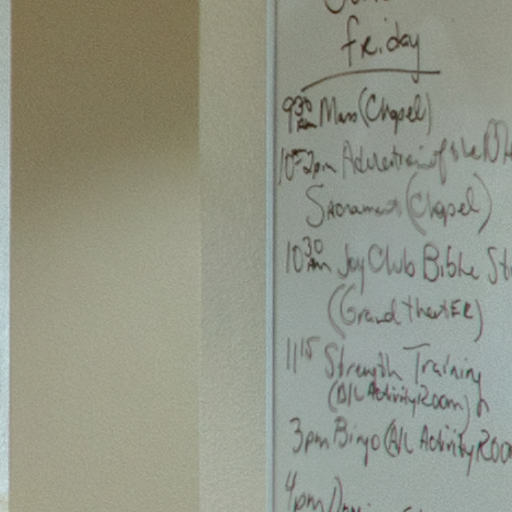 Friday
9:30 Am Mass (Chapel)
10-2pm Adoration of the
Sacrament (Chapel)
10:30 Am Joy Club Bible
(Grand theatER)
11:15 Strength Training
(A/L Activity Room)
3pm Bingo (A/L Activity
4pm